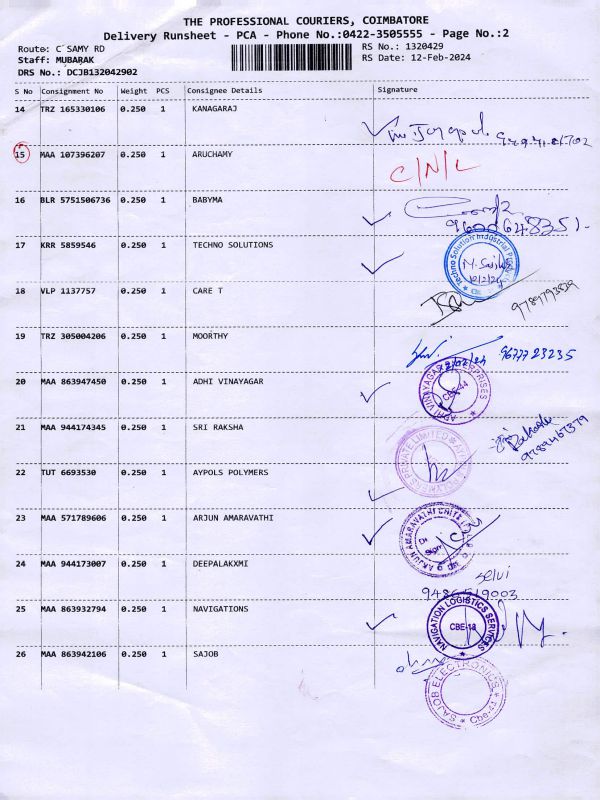 THE PROFESSIONAL COURIERS, COIMBATORE
Delivery Runsheet - PCA - Phone No.:0422-3505555 - Page No.:2
Route: C SAMY RD
RS No.: 1320429
Staff: MUBARAK
RS Date: 12-Feb-2024
DRS No.: DCJB132042902
S No Consignment No Weight PCS Consignee Details Signature
14 TRZ 165330106 0.250 1 KANAGARAJ
15 MAA 107396207 0.250 1 ARUCHAMY
C/N/L
16 BLR 5751506736 0.250 1 BABYMA
17 KRR 5859546 0.250 1 TECHNO SOLUTIONS
Techno Solution Industrial
12/2/24
18 VLP 1137757 0.250 1 CARE T
9789793829
19 TRZ 305004206 0.250 1 MOORTHY
9677723235
12/02/24
20 MAA 863947450 0.250 1 ADHI VINAYAGAR
ADHI VINAYAGAR ENTERPRISES
CBE-44
21 MAA 944174345 0.250 1 SRI RAKSHA
9789467379
22 TUT 6693530 0.250 1 AYPOLS POLYMERS
PRIVATE LIMITED
23 MAA 571789606 0.250 1 ARJUN AMARAVATHI
ARJUN AMARAVATHI CHITS
24 MAA 944173007 0.250 1 DEEPALAKXMI
selvi
9486519003
25 MAA 863932794 0.250 1 NAVIGATIONS
NAVIGATION LOGISTICS SERVICES
CBE-18
26 MAA 863942106 0.250 1 SAJOB
SAJOB ELECTRONICS